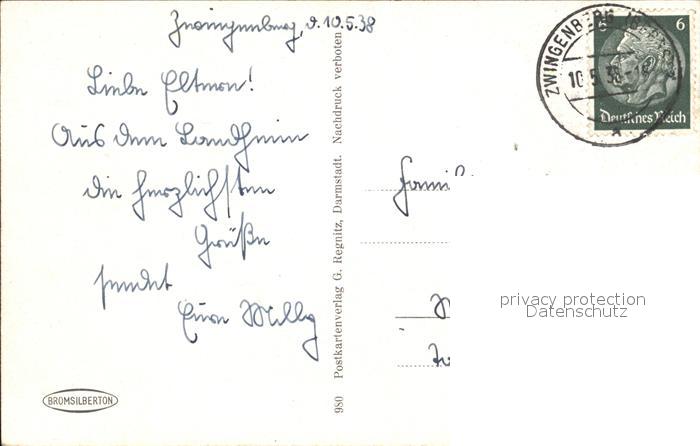 Zwingenberg, d. 10.5.38
Liebe Eltern!
Aus dem Landheim
die herzlichsten
Grüße
sendet
Eure Milly
BROMSILBERTON
980 Postkartenverlag G. Regnitz, Darmstadt. Nachdruck verboten
ZWINGENBERG
10.5.38
6
Deutsches Reich
privacy protection
Datenschutz